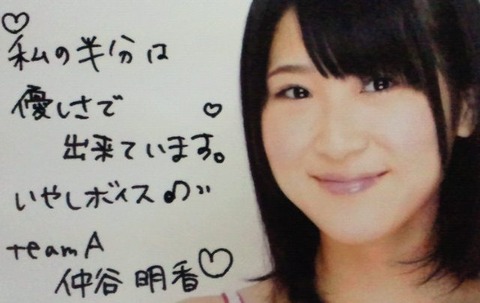 私の半分は
優しさで
出来ています。
いやしボイスの
teamA
仲谷明香